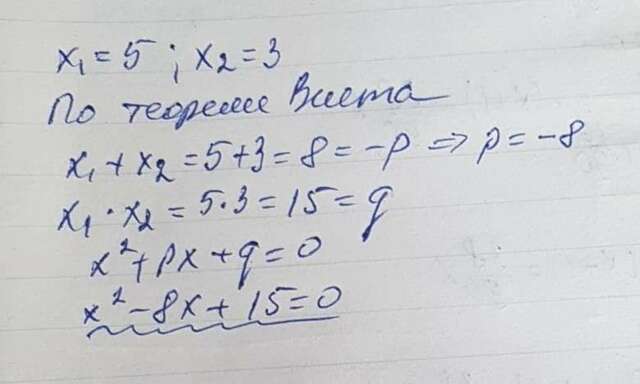 x₁ = 5 ; x₂ = 3
По теореме Виета
x₁ + x₂ = 5+3 = 8 = -p => p = -8
x₁ · x₂ = 5·3 = 15 = q
x² + px + q = 0
x² - 8x + 15 = 0